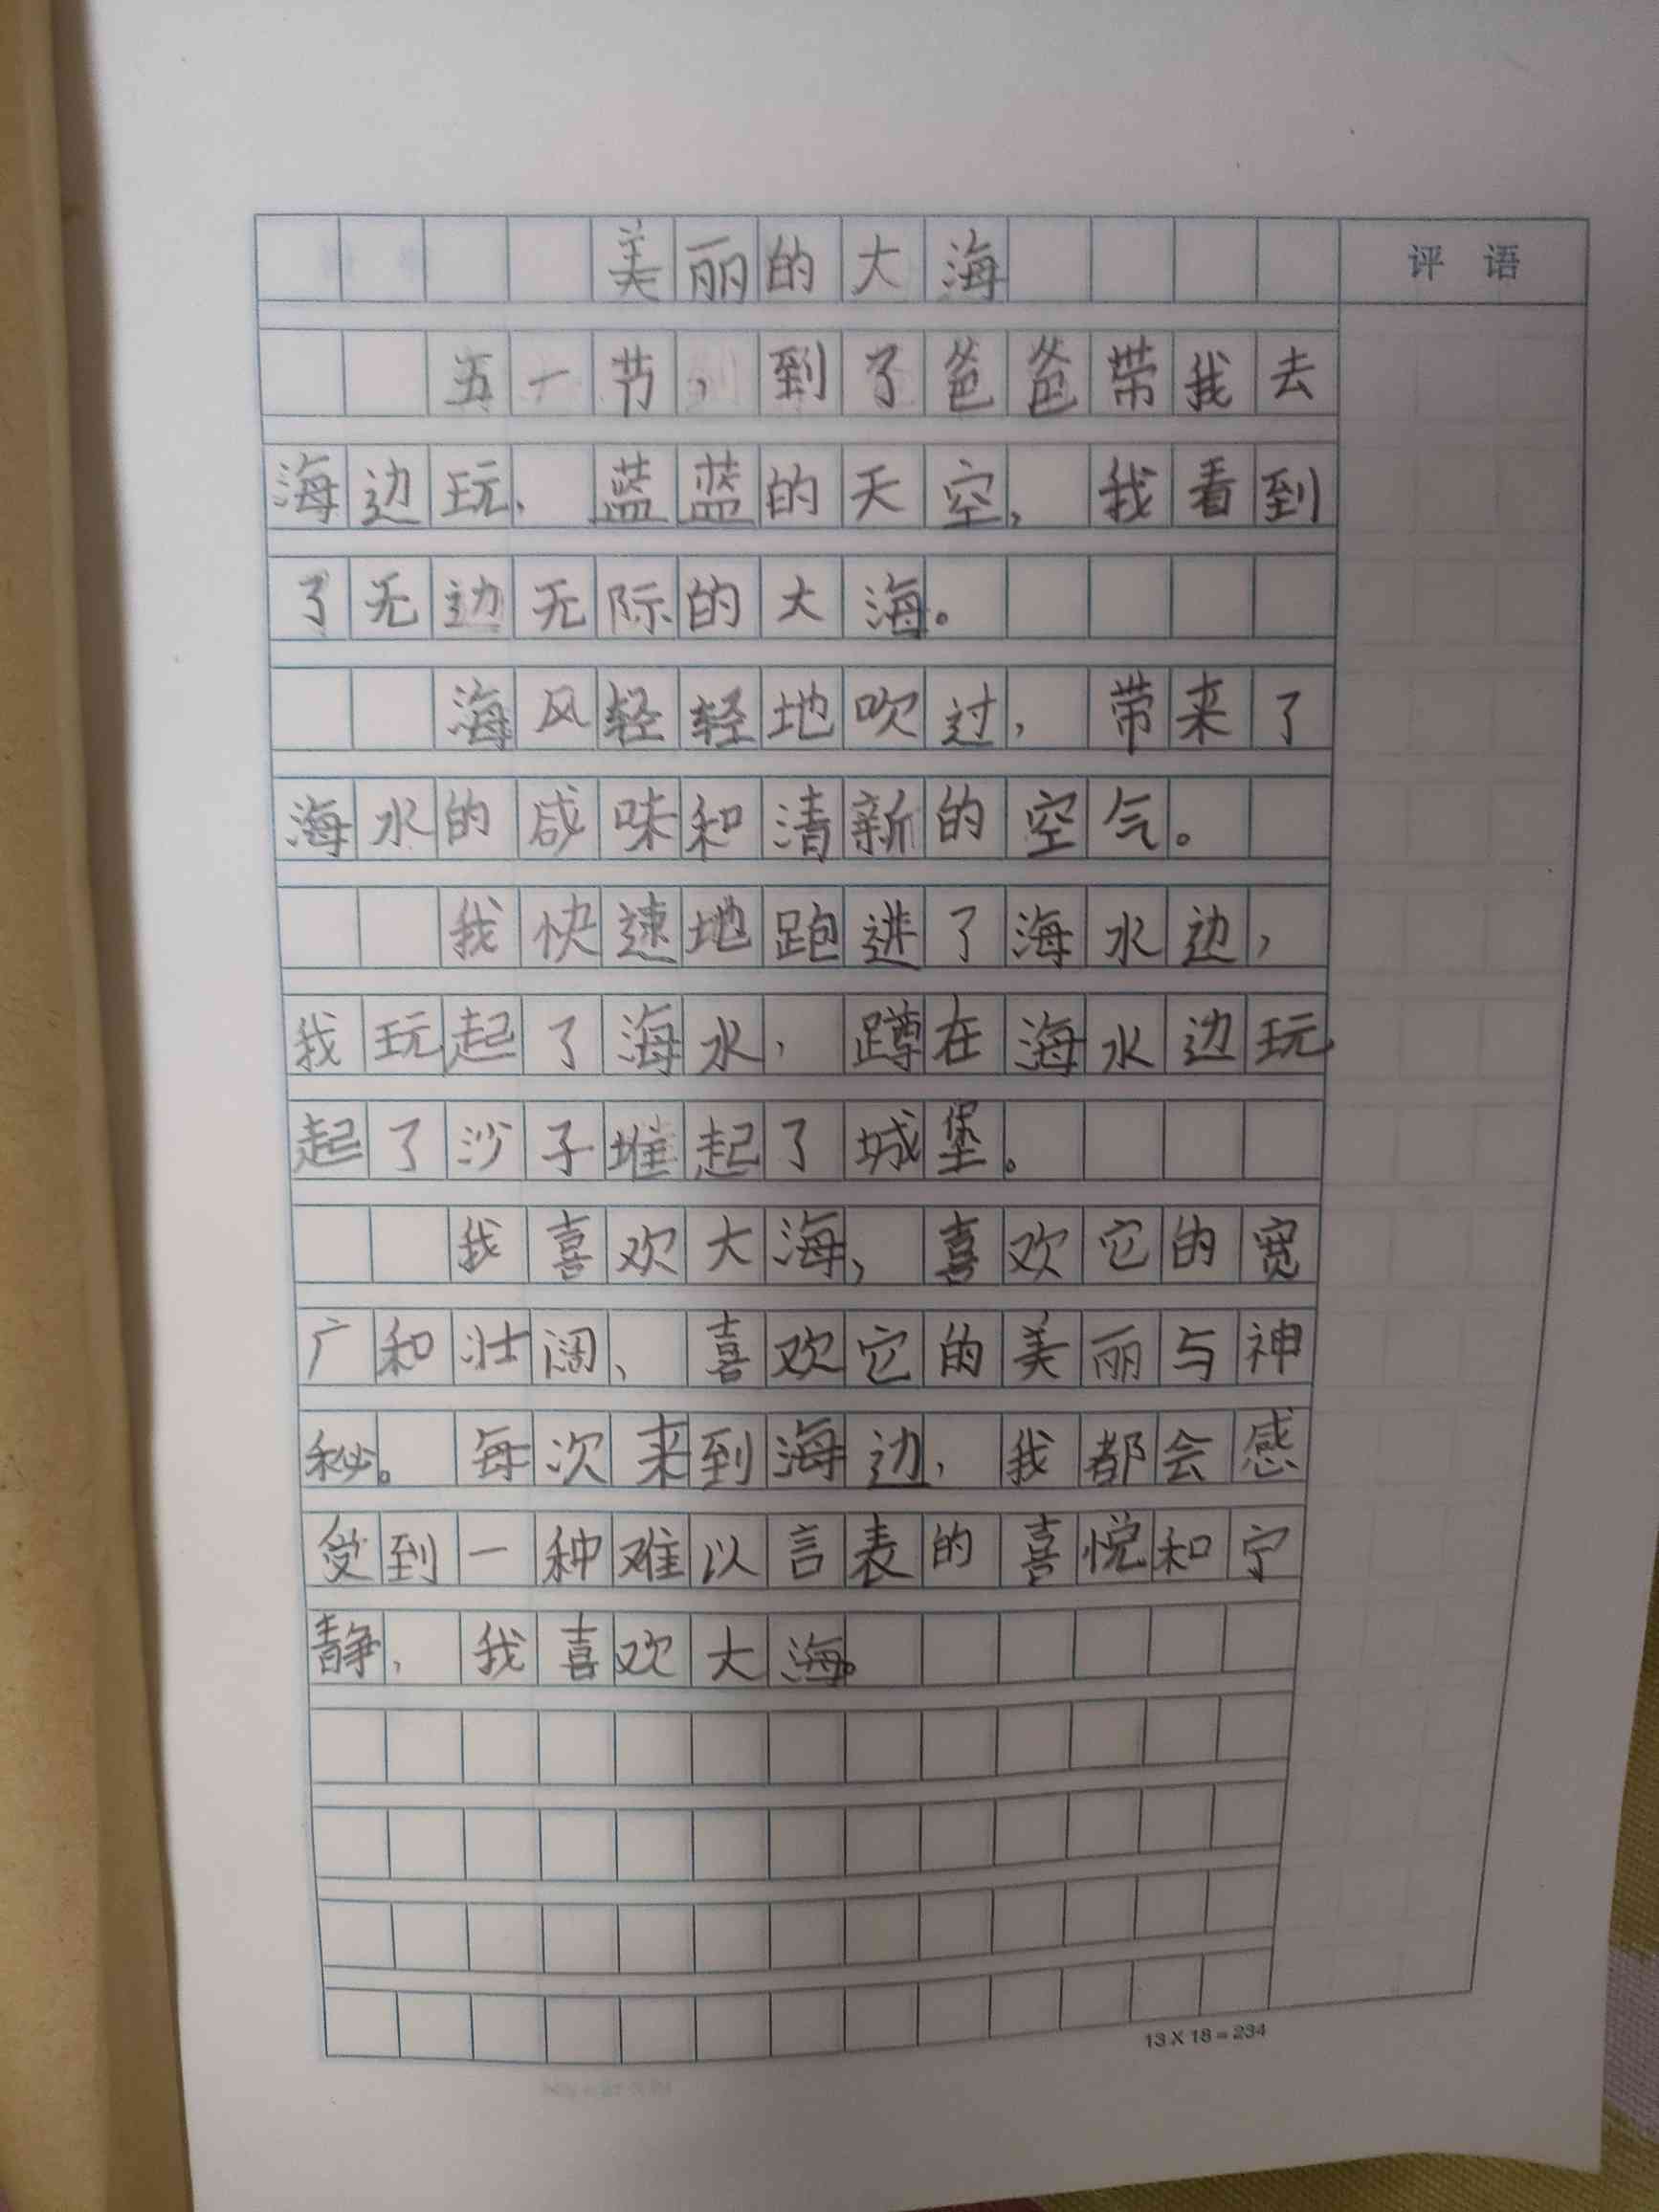 美丽的大海
评语
五一节，到了爸爸带我去
海边玩、蓝蓝的天空，我看到
了无边无际的大海。
海风轻轻地吹过，带来了
海水的咸味和清新的空气。
我快速地跑进了海水边，
我玩起了海水，蹲在海水边玩
起了沙子堆起了城堡。
我喜欢大海，喜欢它的宽
广和壮阔、喜欢它的美丽与神
秘。每次来到海边，我都会感
受到一种难以言表的喜悦和宁
静，我喜欢大海。
13×18=234